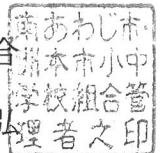 南あわじ市
洲本市小中
学校組合管
理者之印